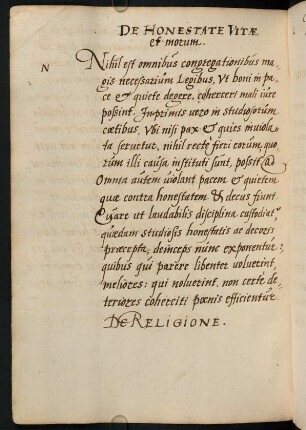 DE HONESTATE VITÆ
et morum.
N
Nihil est omnibus congregationibus ma
gis necessarium Legibus, Ut boni in pa
ce & quiete degere, coherceri mali iure
possint. Inprimis uero in studiosorum
cœtibus, Ubi nisi pax & quies inuiola
ta seruetur, nihil recte fieri eorum, quo
rum illi causa instituti sunt, possit.
Omnia autem uiolant pacem et quietem
quæ contra honestatem & decus fiunt
Quare ut laudabilis disciplina custodiat
quædam studiosis honestatis ac decoris
præcepta, deinceps nunc exponentur:
quibus qui parere libenter voluerint,
meliores: qui noluerint, non certe de
teriores coherciti pœnis efficientur.
DE RELIGIONE.